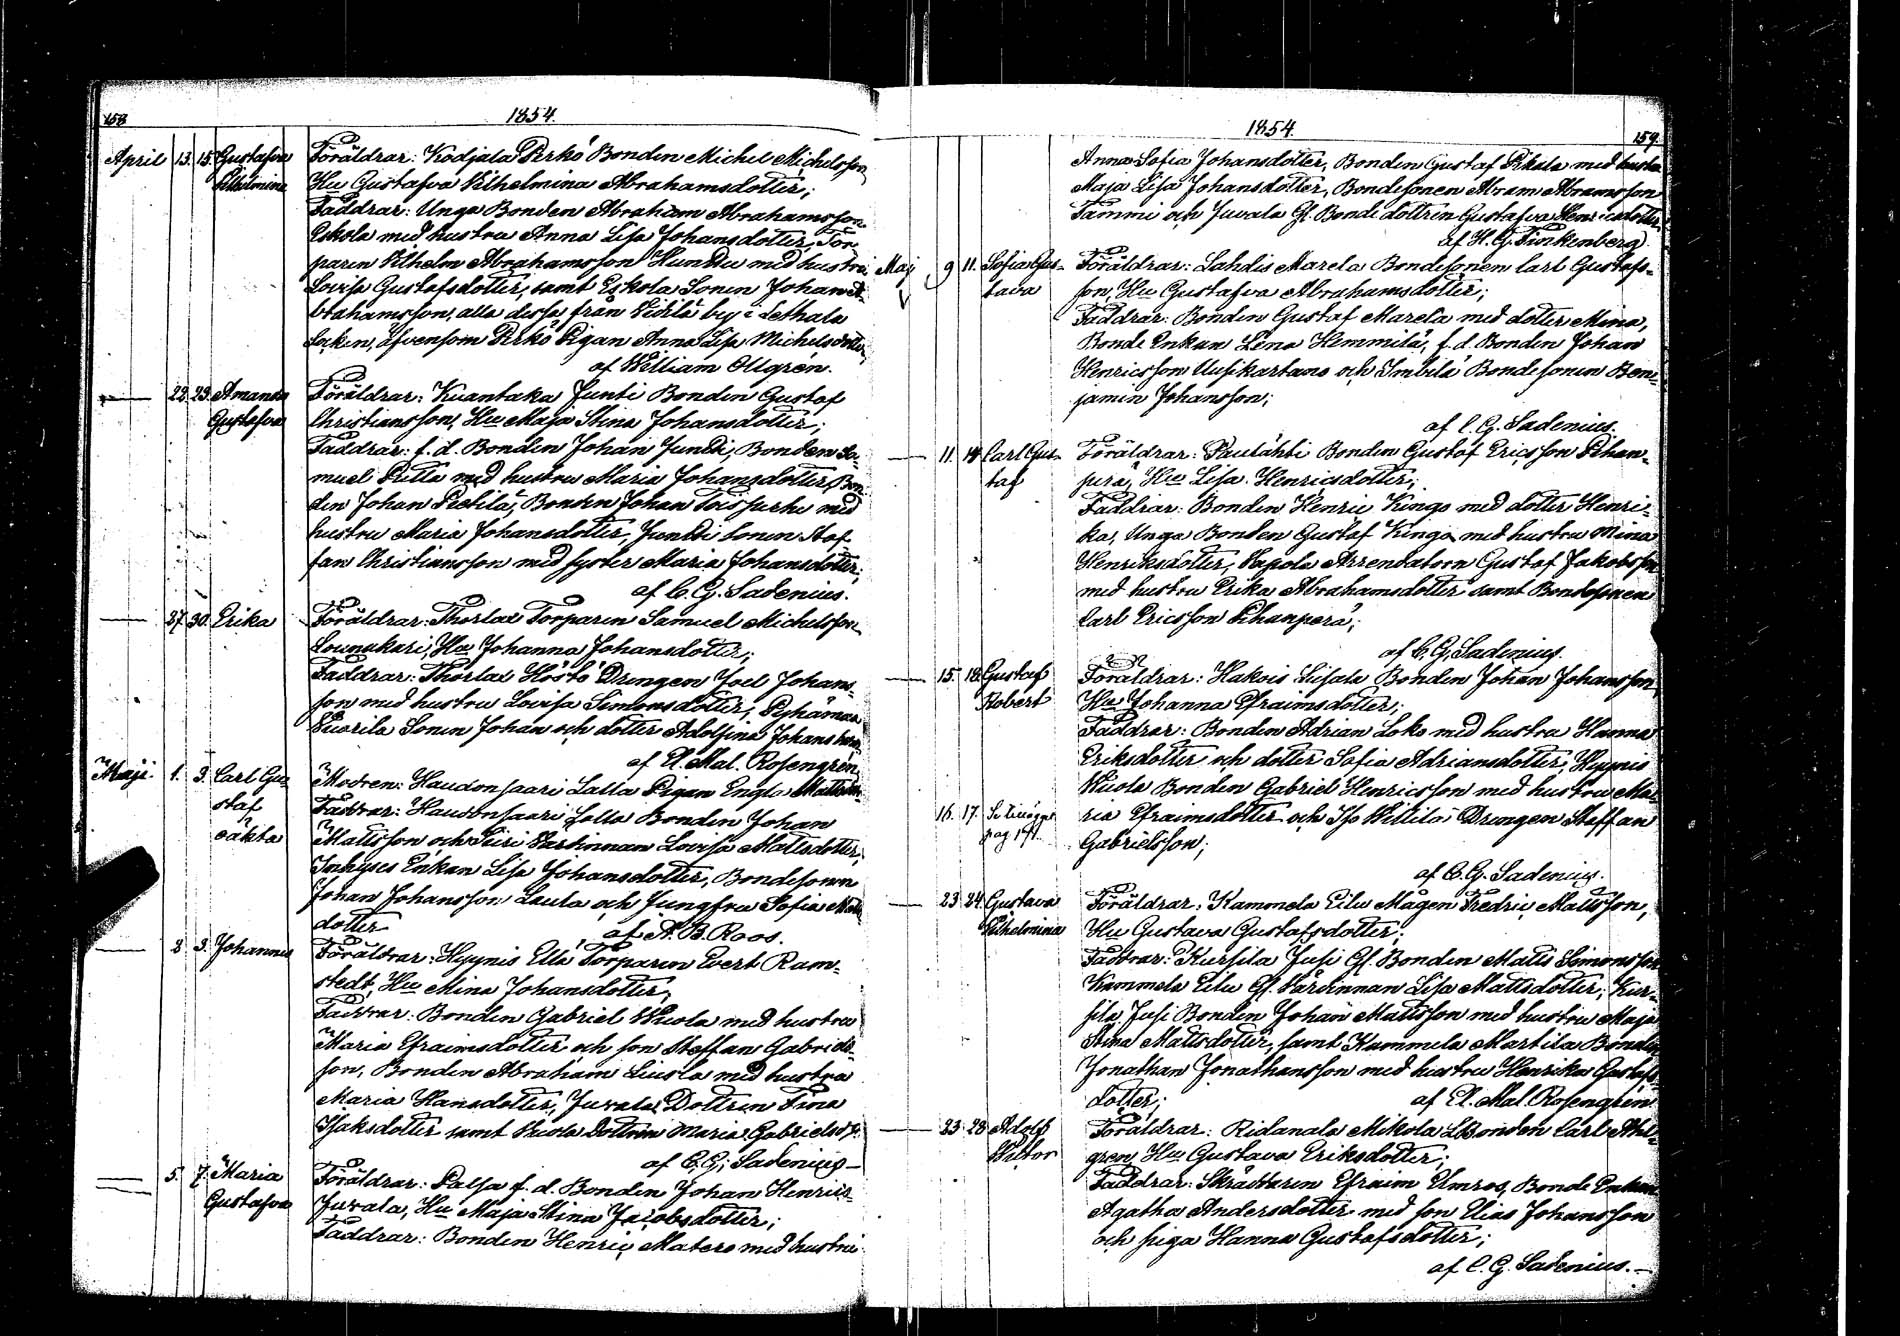 158
1854.
April 13. 15. Gustafva Föräldrar: Kodjala Perko Bonden Michel Michelsson,
Vilhelmina Hu Gustafva Vilhelmina Abrahamsdotter;
Faddrar: Unga Bonden Abraham Abrahamsson
Eskola med hustru Anna Lisa Johansdotter, Tor
paren Vilhelm Abrahamsson Hundu med hustru
Lovisa Gustafsdotter, samt Eskola Sonen Johan A-
brahamsson, alla dessa från by i Lethala
Socken, äfvensom Perko Pigan Anna Lisa Michelsdotter,
af William Ollgrén.
22. 23. Amanda Föräldrar: Kuantaka Junti Bonden Gustaf
Gustafva Christiansson, Hu Maja Stina Johansdotter;
Faddrar: f. d. Bonden Johan Juntti, Bonden Sa-
muel Putta med hustru Maria Johansdotter, Bon-
den Johan Pietilä, Bonden Johan med
hustru Maria Johansdotter, Juntti Sonen Staf
fan Christiansson med syster Maria Johansdotter;
af C. G. Sadenius.
27. 30. Erika Föräldrar: Thorlax Torparen Samuel Michelsson
Lounakari, Hu Johanna Johansdotter;
Faddrar: Thorlax Höstö Drengen Joel Johans-
son med hustru Lovisa Simonsdotter, Pyhämaa
Vuorila Sonen Johan och dotter Adolfina Johans
af El. Mal. Rosengrén
Maji 1. 3. Carl Gu- Modren: Haudonsaari Lalla Pigan Engla
staf Faddrar: Haudonsaari Lalla Bonden Johan
oäkta Mattsson och Värdinnan Lovisa Mattsdotter,
Inhyses Enkan Lisa Johansdotter, Bondesonen
Johan Johansson Laula och Jungfru Sofia
dotter af A. B. Roos.
2. 3. Johannes Föräldrar: Hypnis Ella Torparen Evert Ram-
stedt, Hu Mina Johansdotter,
Faddrar: Bonden Gabriel Wuola med hustru
Maria Efraimsdotter och son Steffan Gabriels-
son, Bonden Abraham med hustru
Maria Hansdotter, Juvala Dottren Tina
Isaksdotter samt Wuola Dottren Maria Gabrielsdr.
af C. G. Sadenius
5. 7. Maria Föräldrar: Palsa f. d. Bonden Johan Henriks.
Gustafva Juvala, Hu Maja Stina Jacobsdotter;
Faddrar: Bonden Henric Matero med hustru
1854.
159.
Anna Sofia Johansdotter, Bonden Gustaf Pikala med hustru
Maja Lisa Johansdotter, Bondesonen Abram Abramsson
Tammi och Juvala Gl. Bonde dottren Gustafva Henricsdotter,
af H. G. Finkenberg
Maj 9 11. Sofia Gus- Föräldrar: Lahdis Marela Bondesonen Carl Gustafs-
tava son, Hu Gustafva Abrahamsdotter;
Faddrar: Bonden Gustaf Marela med dotter Mina,
Bonde Enkan Lena Hemmilä, f. d. Bonden Johan
Henricsson Uusikartano och Simbilä Bondesonen Ben-
jamin Johansson;
af C. G. Sadenius.
11. 14. Carl Gus- Föräldrar: Bonden Gustaf Ericsson Pihan-
taf perä, Hu Lisa Henricsdotter;
Faddrar: Bonden Henric Kingo med dotter Henri-
ka, Unga Bonden Gustaf Kingo med hustru Mina
Henriksdotter, Arrendatorn Gustaf Jakobsson
med hustru Erika Abrahamsdotter samt Bondesonen
Carl Ericsson Pihanperä;
af C. G. Sadenius.
15. 18. Gustaf Föräldrar: Hakois Bonden Johan Johansson,
Robert Hu Johanna Efraimsdotter;
Faddrar: Bonden Adrian Loko med hustru Hanna
Eriksdotter och dotter Sofia Adriansdotter, Hypnis
Wuola Bonden Gabriel Henricsson med hustru Ma-
16. 17. ria Efraimsdotter och Iso Willilä Drengen Staffan
Gabrielsson;
af C. G. Sadenius.
23 24. Gustava Föräldrar: Kammela Eilu Mågen Fredric Mattsson,
Vilhelmina Hu Gustava Gustafsdotter,
Faddrar: Kursila Jusi Gl. Bonden Matts Simonsson
Kammela Eilu Gl. Värdinnan Lisa Mattsdotter, Kur-
sila Jusi Bonden Johan Mattsson med hustru Maja
Stina Mattsdotter, samt Kammela Martila Bonden
Jonathan Jonathansson med hustru Henrika Gustafs-
dotter; af El. Mal. Rosengrén
23 28 Adolf Föräldrar: Ridanala Mikola Bonden Carl Ahl-
Viktor gren, Hu Gustava Eriksdotter;
Faddrar: Skräddaren Efraim Elmros, Bonde Enkan
Agatha Andersdotter med son Elias Johansson
och piga Hanna Gustafsdotter;
af C. G. Sadenius.